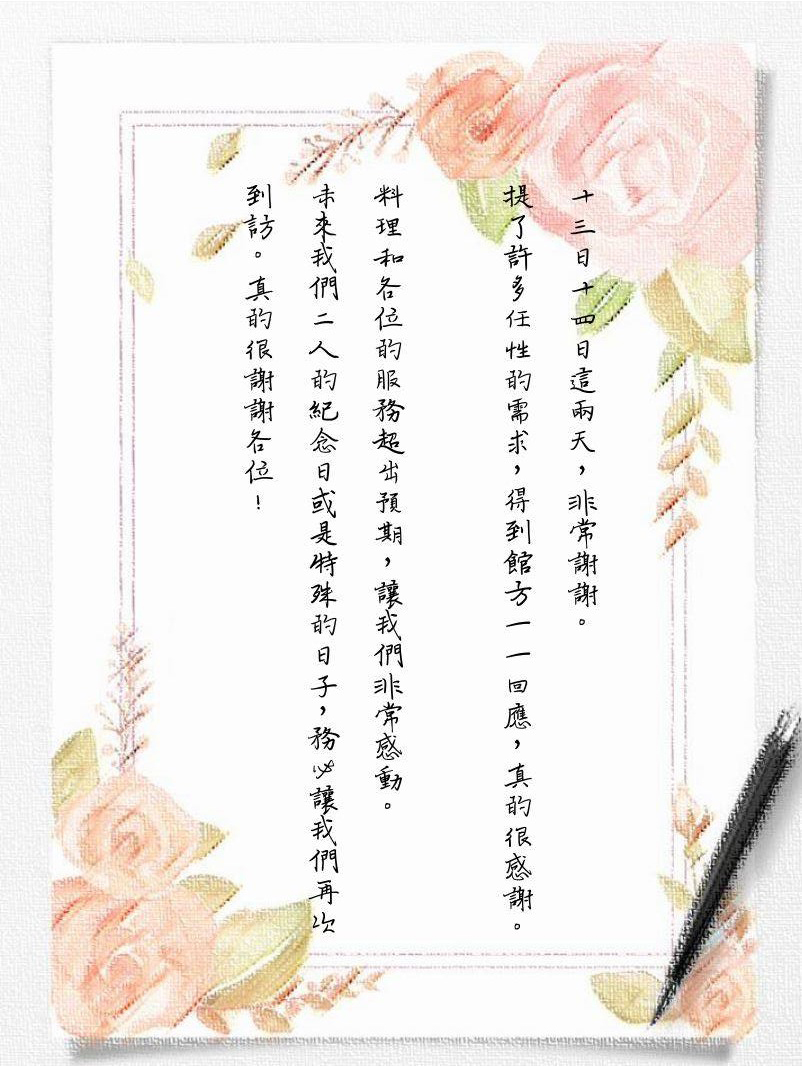 十三日十四日這兩天，非常謝謝。
提了許多任性的需求，得到館方一一回應，真的很感謝。
料理和各位的服務超出預期，讓我們非常感動。
未來我們二人的紀念日或是特殊的日子，務必讓我們再次
到訪。真的很謝謝各位！